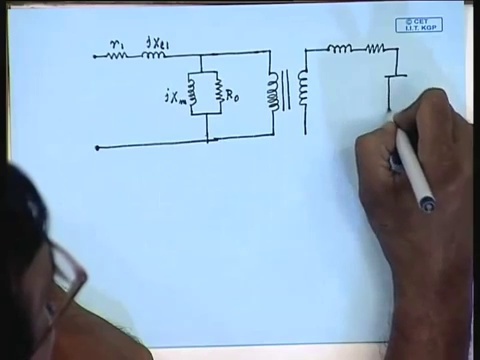 © CET
I.I.T. KGP
r₁ jXl1
jXm R₀